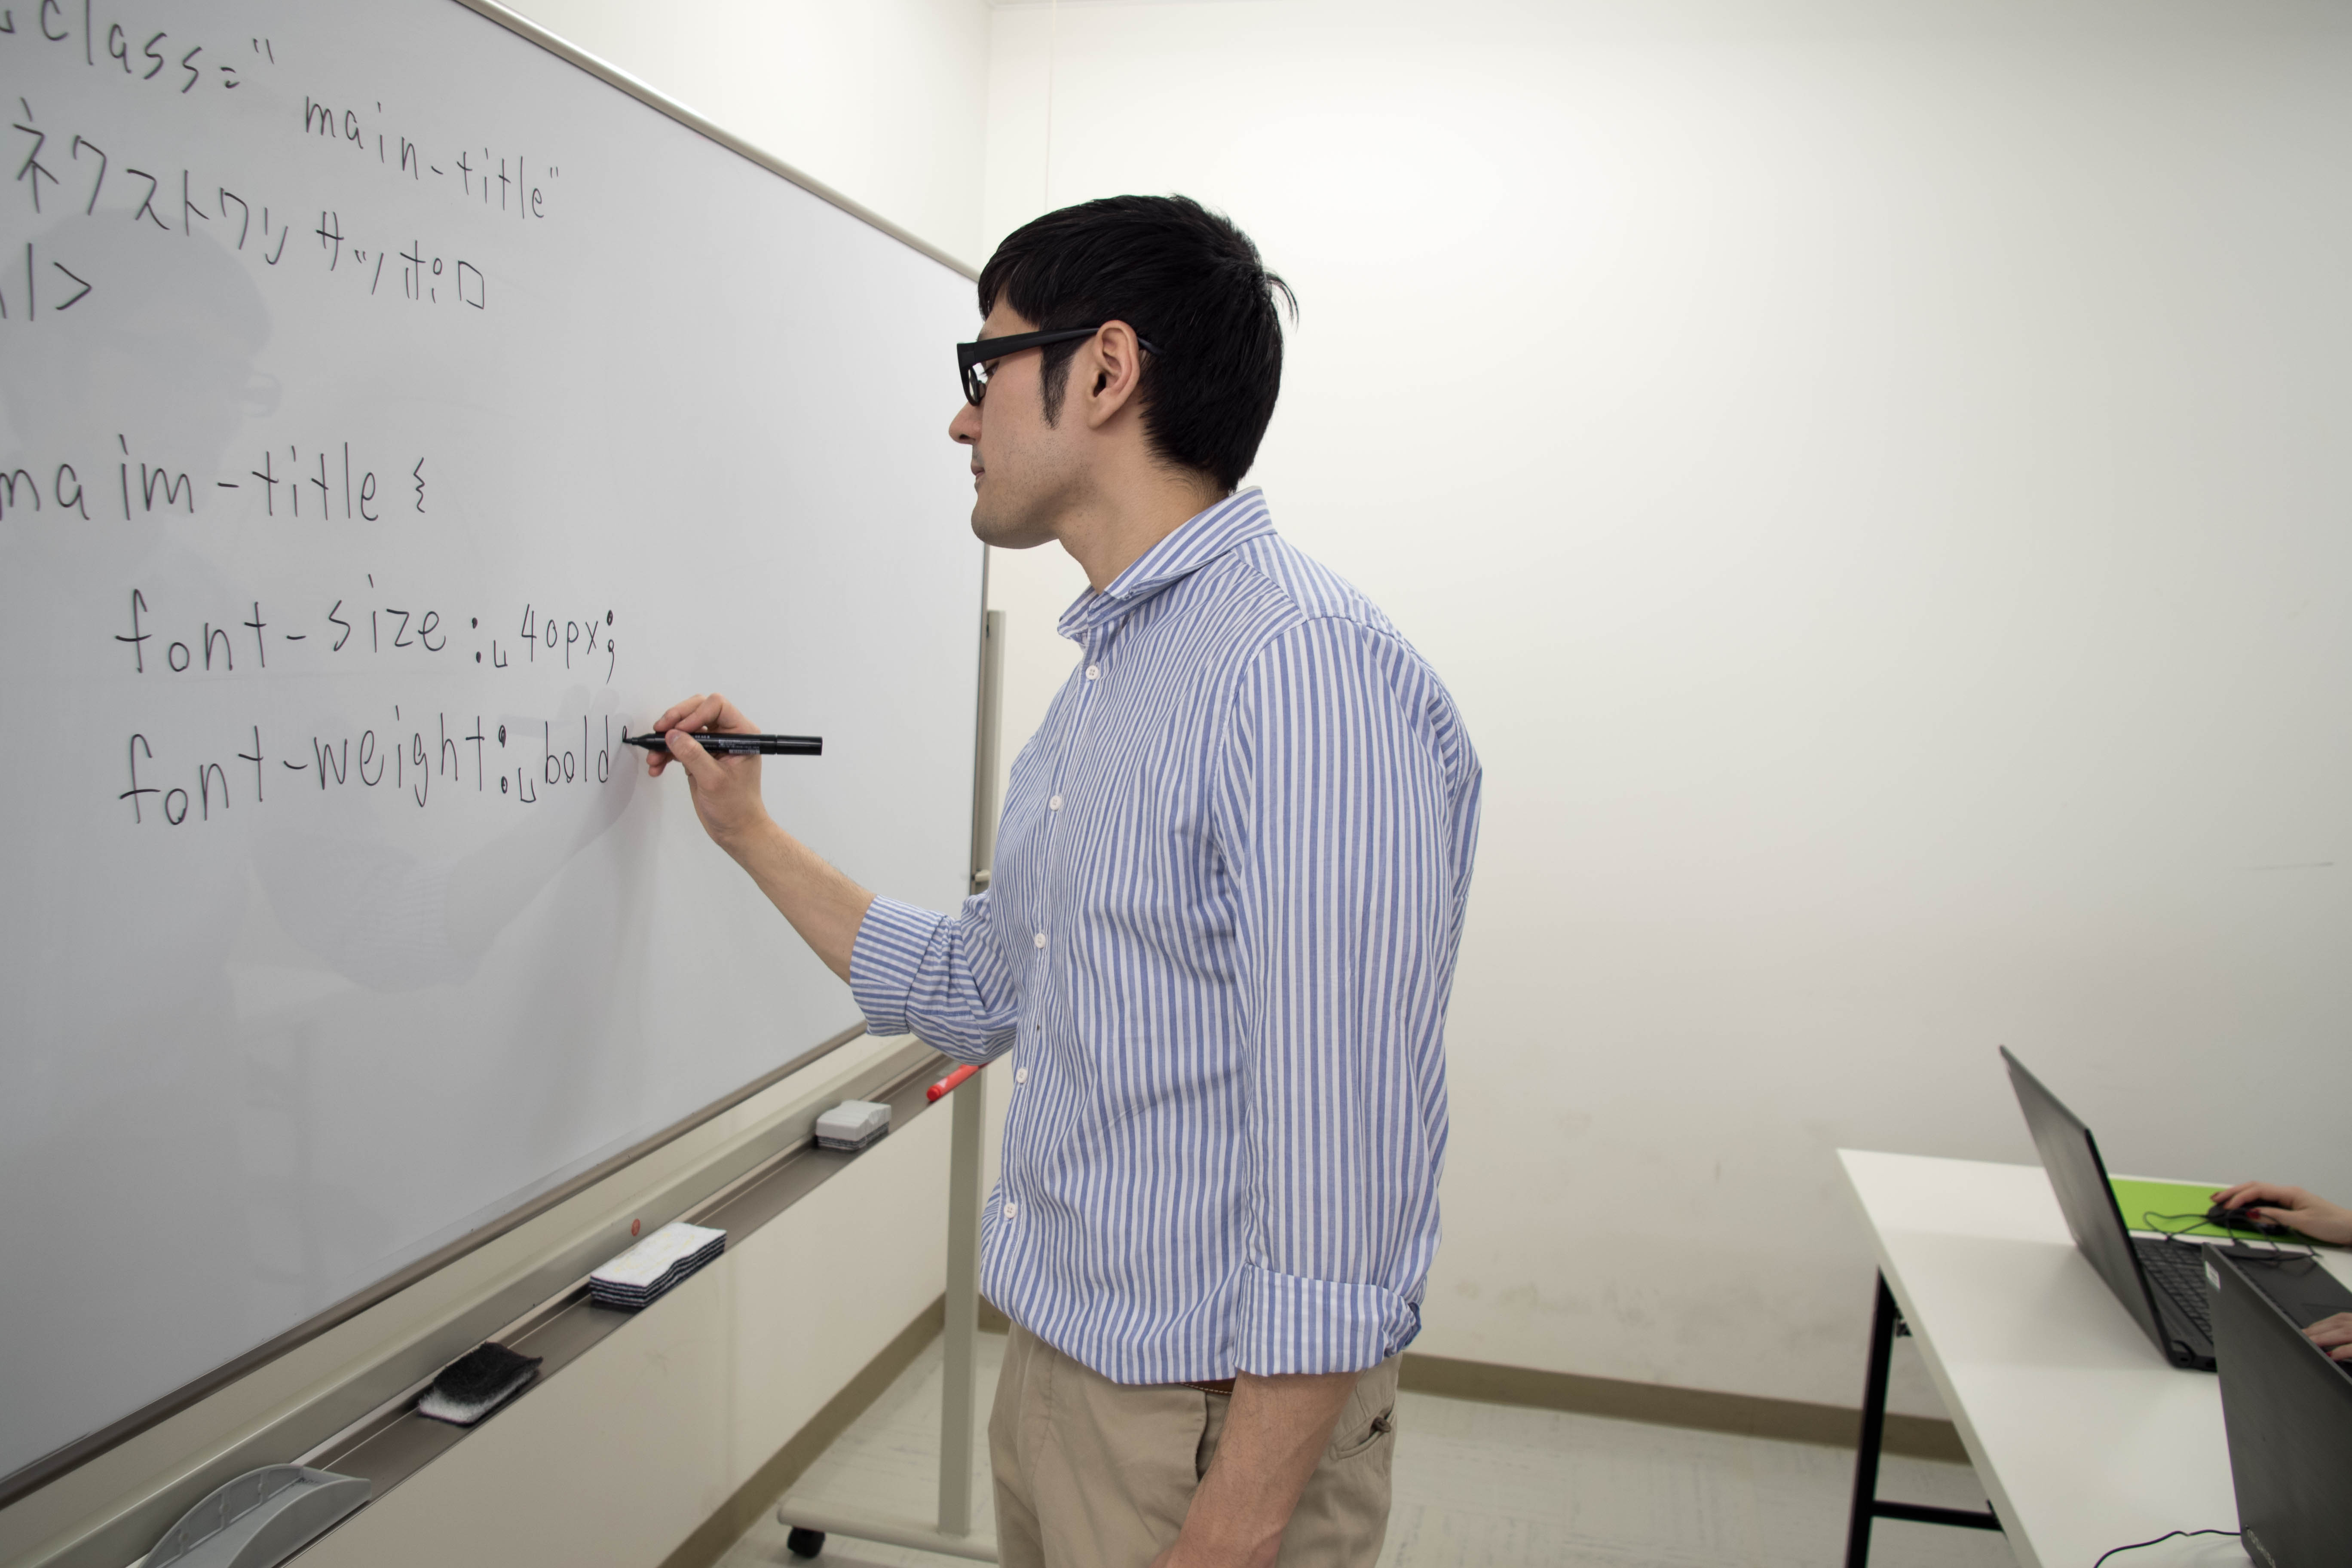 ␣class="main-title"
ネクストワリ サッポロ
1>
maim-title {
font-size:␣40px;
font-weight:␣bold